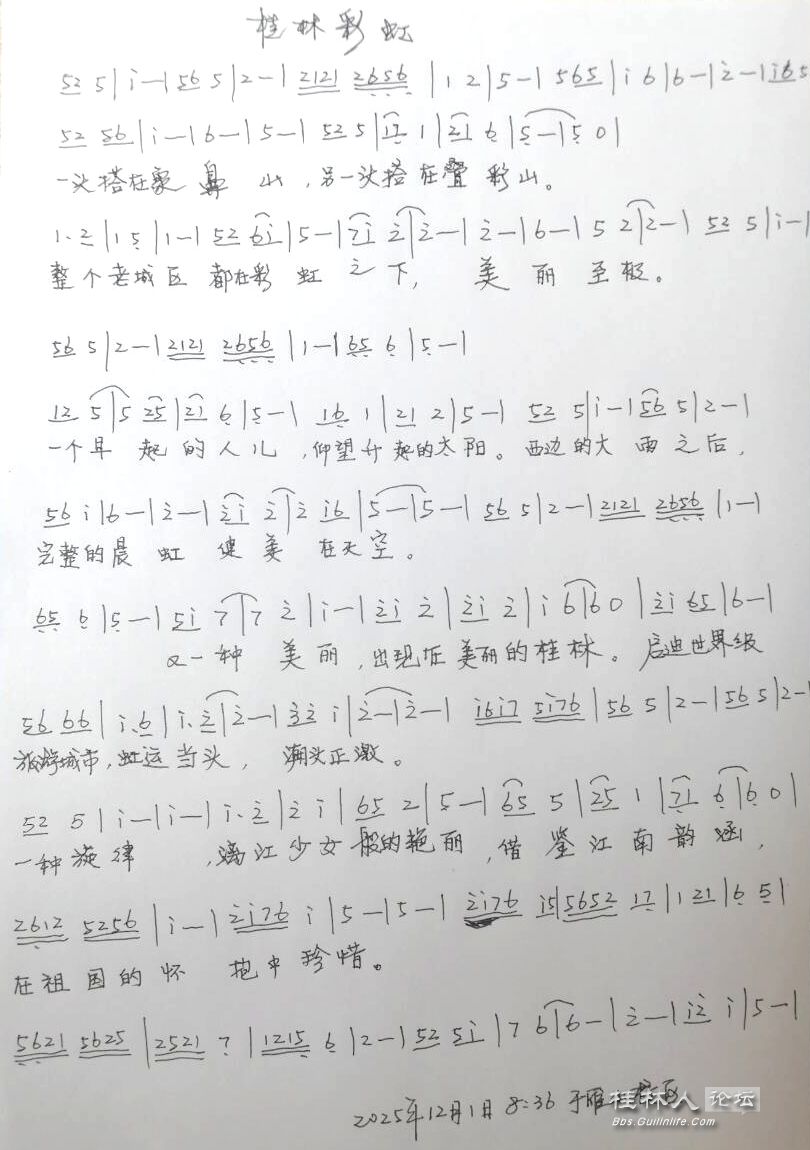 桂林彩虹
52 5 | i - | 56 5 | 2 - | 2121 2656 | 1 2 | 5 - | 565 | i 6 | 6 - | 2̇ - | i65
52 56 | i - | 6 - | 5 - | 52 5 | i7 1 | 21 6 | 5 - | 5 0 |
一头搭在象鼻山，另一头搭在叠彩山。
1. 2 | 1 5 | 1 - | 52 6i | 5 - | 7i 2̇ | 2̇ - | 2̇ - | 6 - | 5 2 | 2 - | 52 5 | i - |
整个老城区都在彩虹之下，美丽至极。
56 5 | 2 - | 2121 2656 | 1 - | 65 6 | 5 - |
12 5 | 5 25 | 21 6 | 5 - | 16 1 | 21 2 | 5 - | 52 5 | i - | 56 5 | 2 - |
一个早起的人儿，仰望升起的太阳。西边的大雨之后，
56 i | 6 - | 2̇ - | 2̇i 2̇ | 2̇ i6 | 5 - | 5 - | 56 5 | 2 - | 2121 2656 | 1 - |
完整的晨虹健美在天空。
65 6 | 5 - | 5i 7 | 7 2̇ | i - | 2̇i 2̇ | 2̇i 2̇ | i 6 | 6 0 | 2̇i 65 | 6 - |
又一种美丽，出现在美丽的桂林。启迪世界级
56 66 | i. 6 | i. 2̇ | 2̇ - | 3̇2̇ i | 2̇ - | 2̇ - | i6i7 5i76 | 56 5 | 2 - | 56 5 | 2 -
旅游城市，虹运当头，潮头正激。
52 5 | i - | i - | i. 2̇ | 2̇ i | 65 2 | 5 - | 65 5 | 25 1 | 71 6 | 6 0 |
一种旋律，漓江少女般的艳丽，借鉴江南韵涵，
2612 5256 | i - | 2̇i76 i | 5 - | 5 - | 2̇i76 i5 | 5652 17 | 1 21 | 6 5 |
在祖国的怀抱中珍惜。
5621 5625 | 2521 7 | 1215 6 | 2 - | 52 5i | 7 6 | 6 - | 2̇ - | i2̇ i | 5 - |
2025年12月1日 8:36 于雁
桂林人论坛
Bbs.Guilinlife.Com